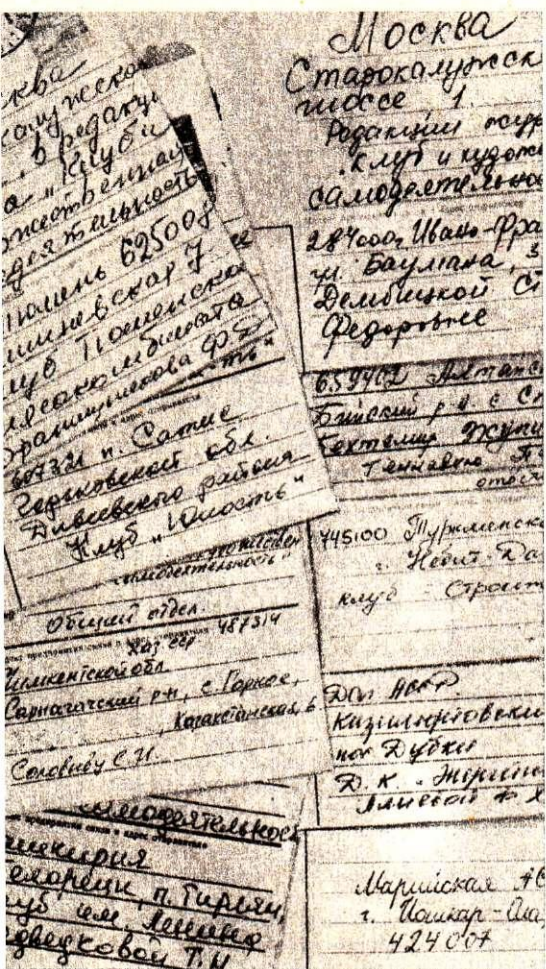 Москва
Старокалужск
шоссе 1.
Редакции журн
"Клуб и художе
самодеятельнос
284000, Ивано-Фра
ул. Баумана, 3
Дембицкой Ст
Федоровне
659402 Алтайс
Бийский р-н с. С
745100 Туркменска
г. Небит-Да
клуб Строит
Даг АССР
Кизилюртовски
пос Дубки
Д. К.
Алиевой
Марийская АС
г. Йошкар-Ола,
424007
сква
калужско
в редакц
а "Клуб и
ожественная
деятельность
Тюмень 625008
7
луб Тюменско
607321 п. Сатис
Горьковской обл.
Дивеевского района
Клуб "Юность"
самодеятельность"
Общий отдел.
Каз ССР 487314
Чимкентской обл.
Сарыагачский р-н, с. Горное,
Казахстанская, 6
Соловьёву С. И.
самодеятельнос
ашкирия
елорецк, п. Тирлян,
луб им. Ленина
едведковой Т. Н